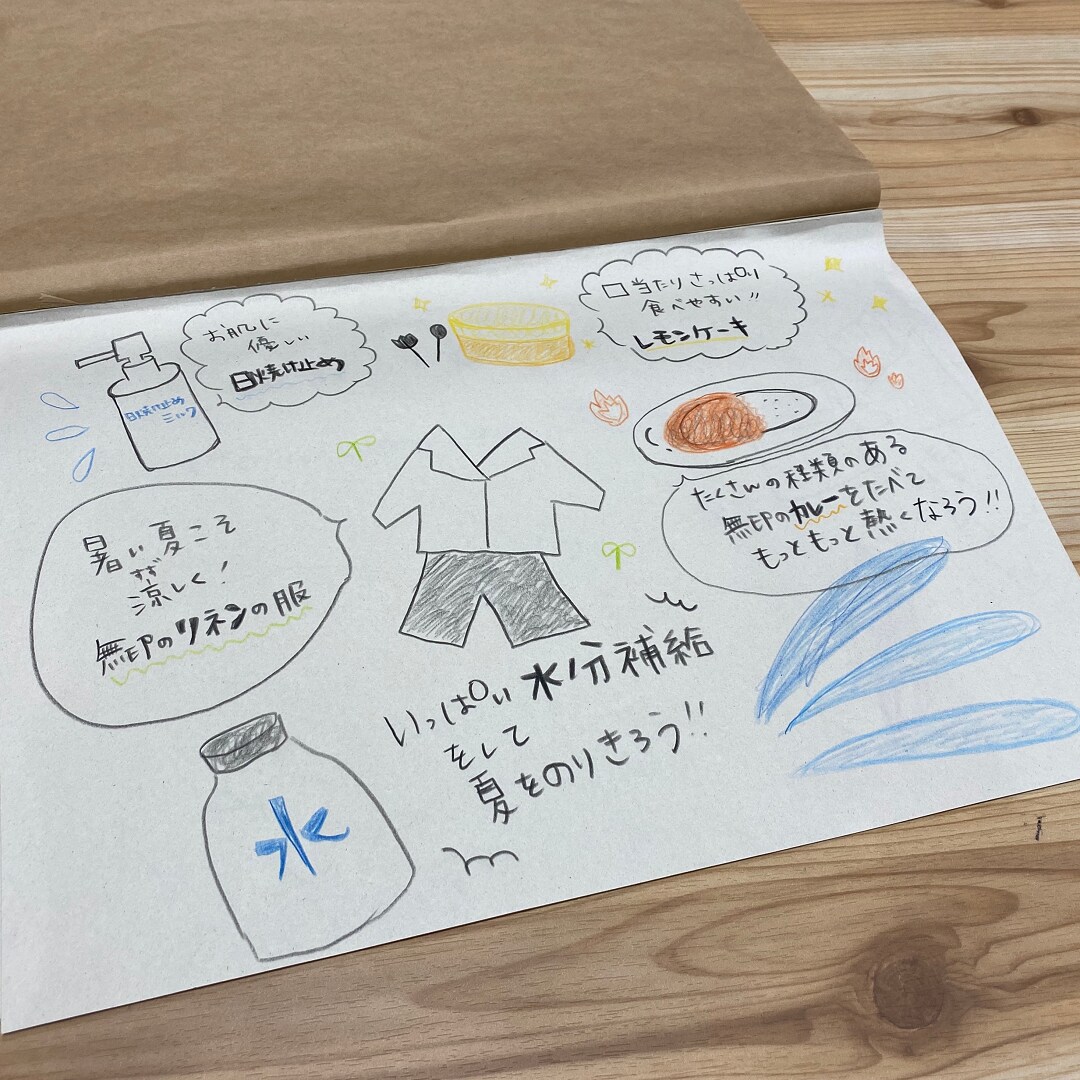 お肌に
優しい
日焼け止め
日焼け止め
ミルク
口当たりさっぱり
食べやすい!!
レモンケーキ
たくさんの種類のある
無印のカレーをたべて
もっともっと熱くなろう!!
暑い夏こそ
涼しく!
無印のリネンの服
いっぱい水分補給
をして
夏をのりきろう!!
水